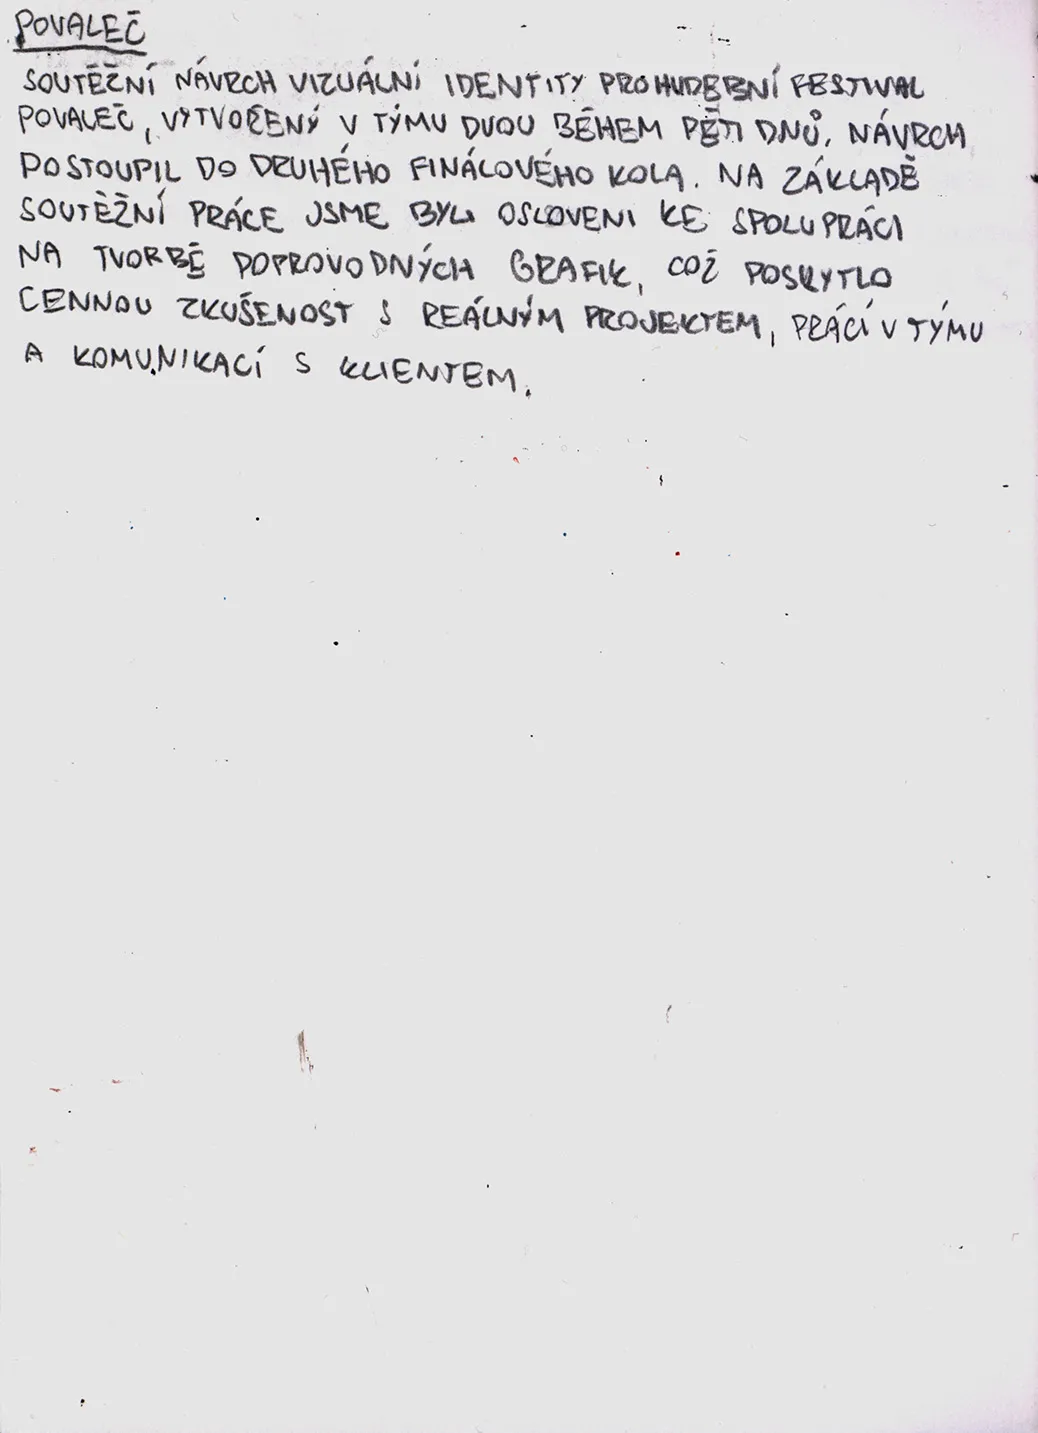 POVALEČ
SOUTĚŽNÍ NÁVRCH VIZUÁLNÍ IDENTITY PRO HUDEBNÍ FESTIVAL
POVALEČ, VYTVOŘENÝ V TÝMU DVOU BĚHEM PĚTI DNŮ. NÁVRCH
POSTOUPIL DO DRUHÉHO FINÁLOVÉHO KOLA. NA ZÁKLADĚ
SOUTĚŽNÍ PRÁCE JSME BYLI OSLOVENI KE SPOLUPRÁCI
NA TVORBĚ DOPROVODNÝCH GRAFIK, COŽ POSKYTLO
CENNOU ZKUŠENOST S REÁLNÝM PROJEKTEM, PRÁCÍ V TÝMU
A KOMUNIKACÍ S KLIENTEM.